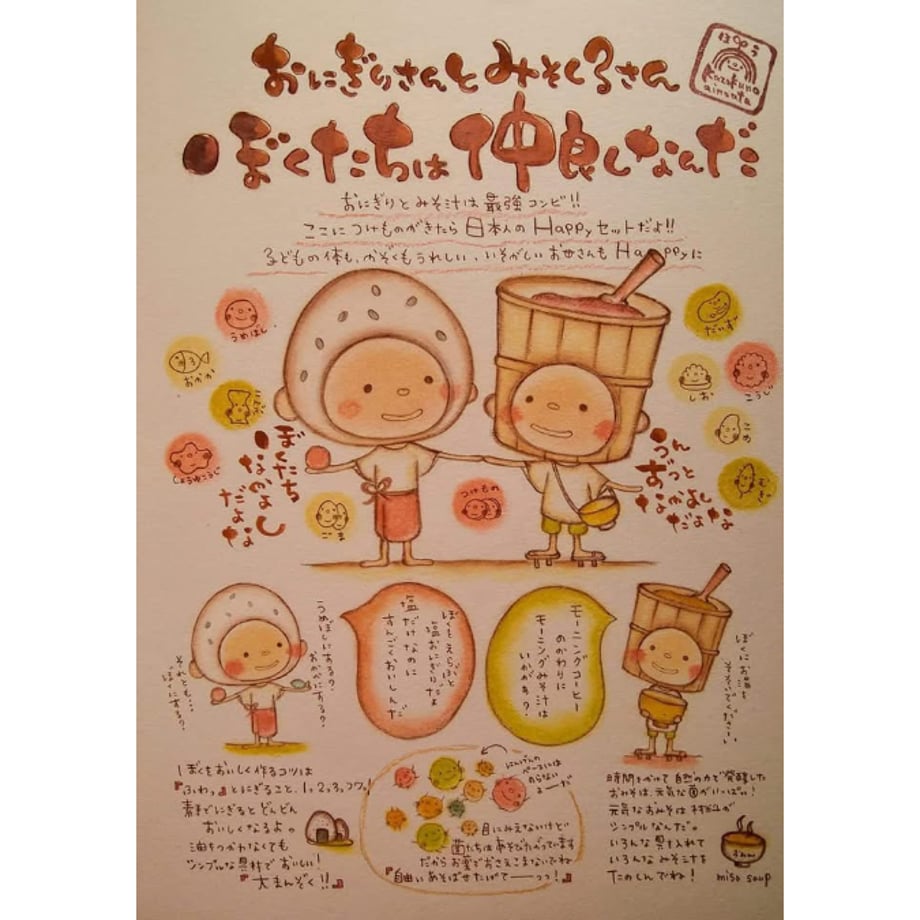 おにぎりさんとみそしるさん
ぼくたちは仲良しなんだ
おにぎりとみそ汁は最強コンビ!!
ここにつけものがきたら日本人のHappyセットだよ!!
子どもの体も、かぞくもうれしい、いそがしいお母さんもHappyに
うめぼし
おかか
こんぶ
しょうゆこうじ
ごま
つけもの
だいず
しお
こうじ
こめ
むぎ
ぼくたち
なかよし
だよな
うん
ずっと
なかよし
だよな
うめぼしにする?
おかかにする?
それとも…
ぼくにする?
ぼくをえらぶと
塩おにぎりだよ
塩だけなのに
すんごいおいしんだ
モーニングコーヒー
のかわりに
モーニングみそ汁は
いかがす?
ぼくにお湯を
そそいでください
ぼくをおいしく作るコツは
『ふわっ』とにぎること、1、2、3、コワ!
素手でにぎるとどんどん
おいしくなるよ。
油をつかわなくても
シンプルな具材でおいしい!
『大まんぞく!!』
にんげんの
ペースには
ならない
よーだ
目にみえないけど
菌たちはあそびたがっています
だからお薬でおさえこまないでね
『自由にあそばせたげてーっっ!』
時間をかけて自然の力で発酵した
おみそは、元気な菌がいっぱい!
元気なおみそは材料が
シンプルなんだ。
いろんな具を入れて
いろんなみそ汁を
たのしんでね!
miso soup